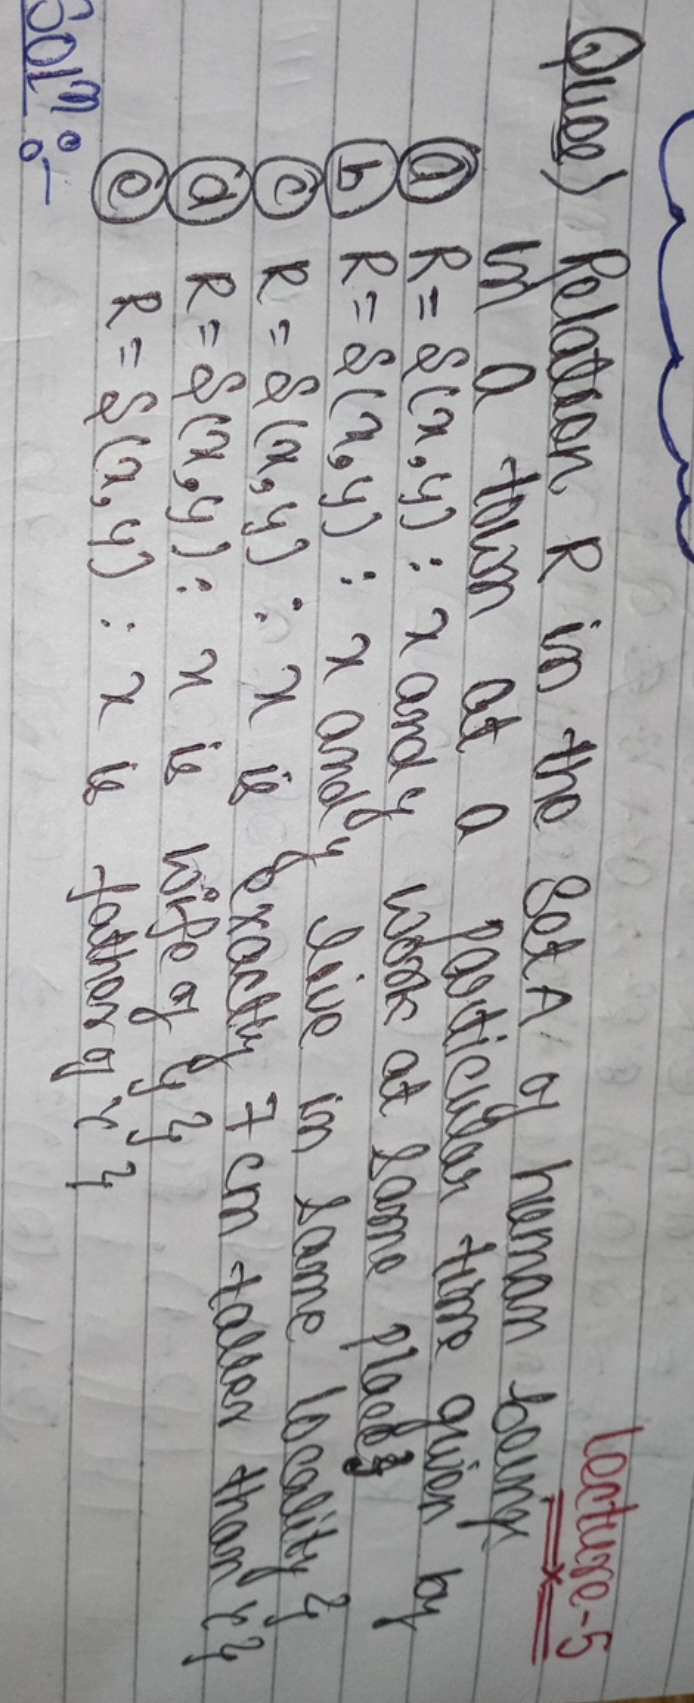 Lecture-5
Ques) Relation R in the Set A of human being
in a town at a particular time given by
(a) R = {(x,y) : x and y work at same place}
(b) R = {(x,y) : x and y live in same locality}
(c) R = {(x,y) : x is exactly 7cm taller than y}
(d) R = {(x,y) : x is wife of y}
(e) R = {(x,y) : x is father of y}
Solⁿ:-